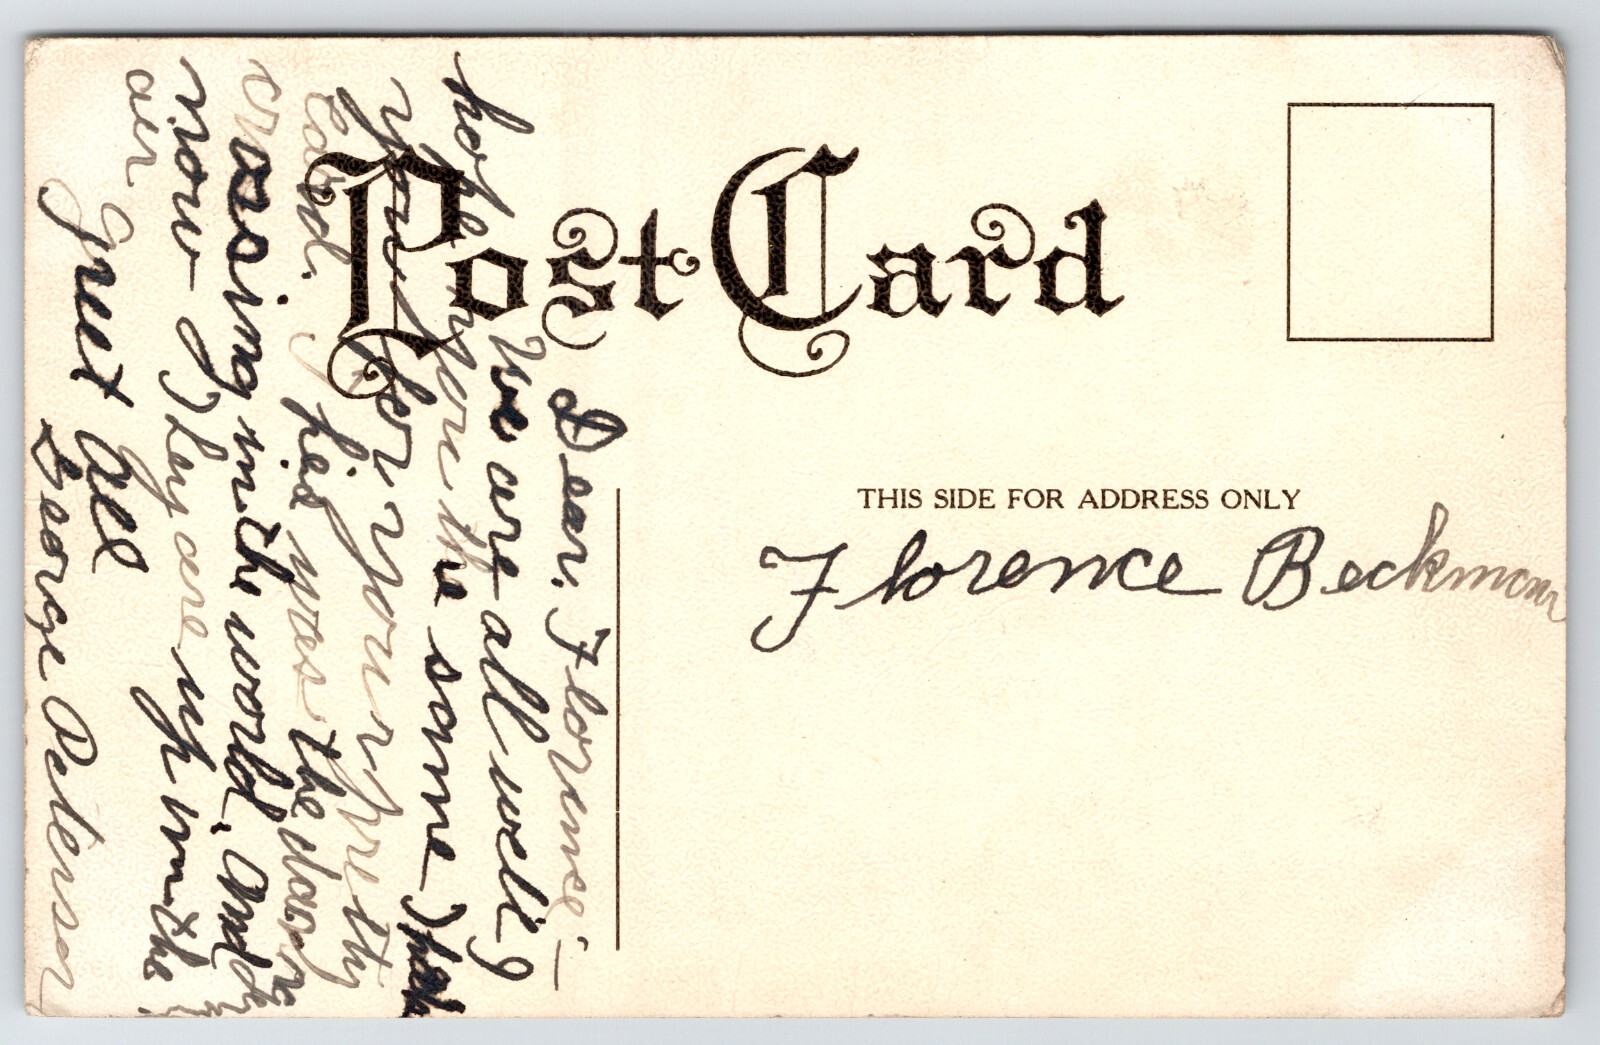 Post Card
THIS SIDE FOR ADDRESS ONLY
Florence Beckman
Dear Florence –
We are all well I
hope you the same Thank
you for your pretty
Card. yes was the
crossing in the world. And
now They are up in the
air
Greet All
George Peterson